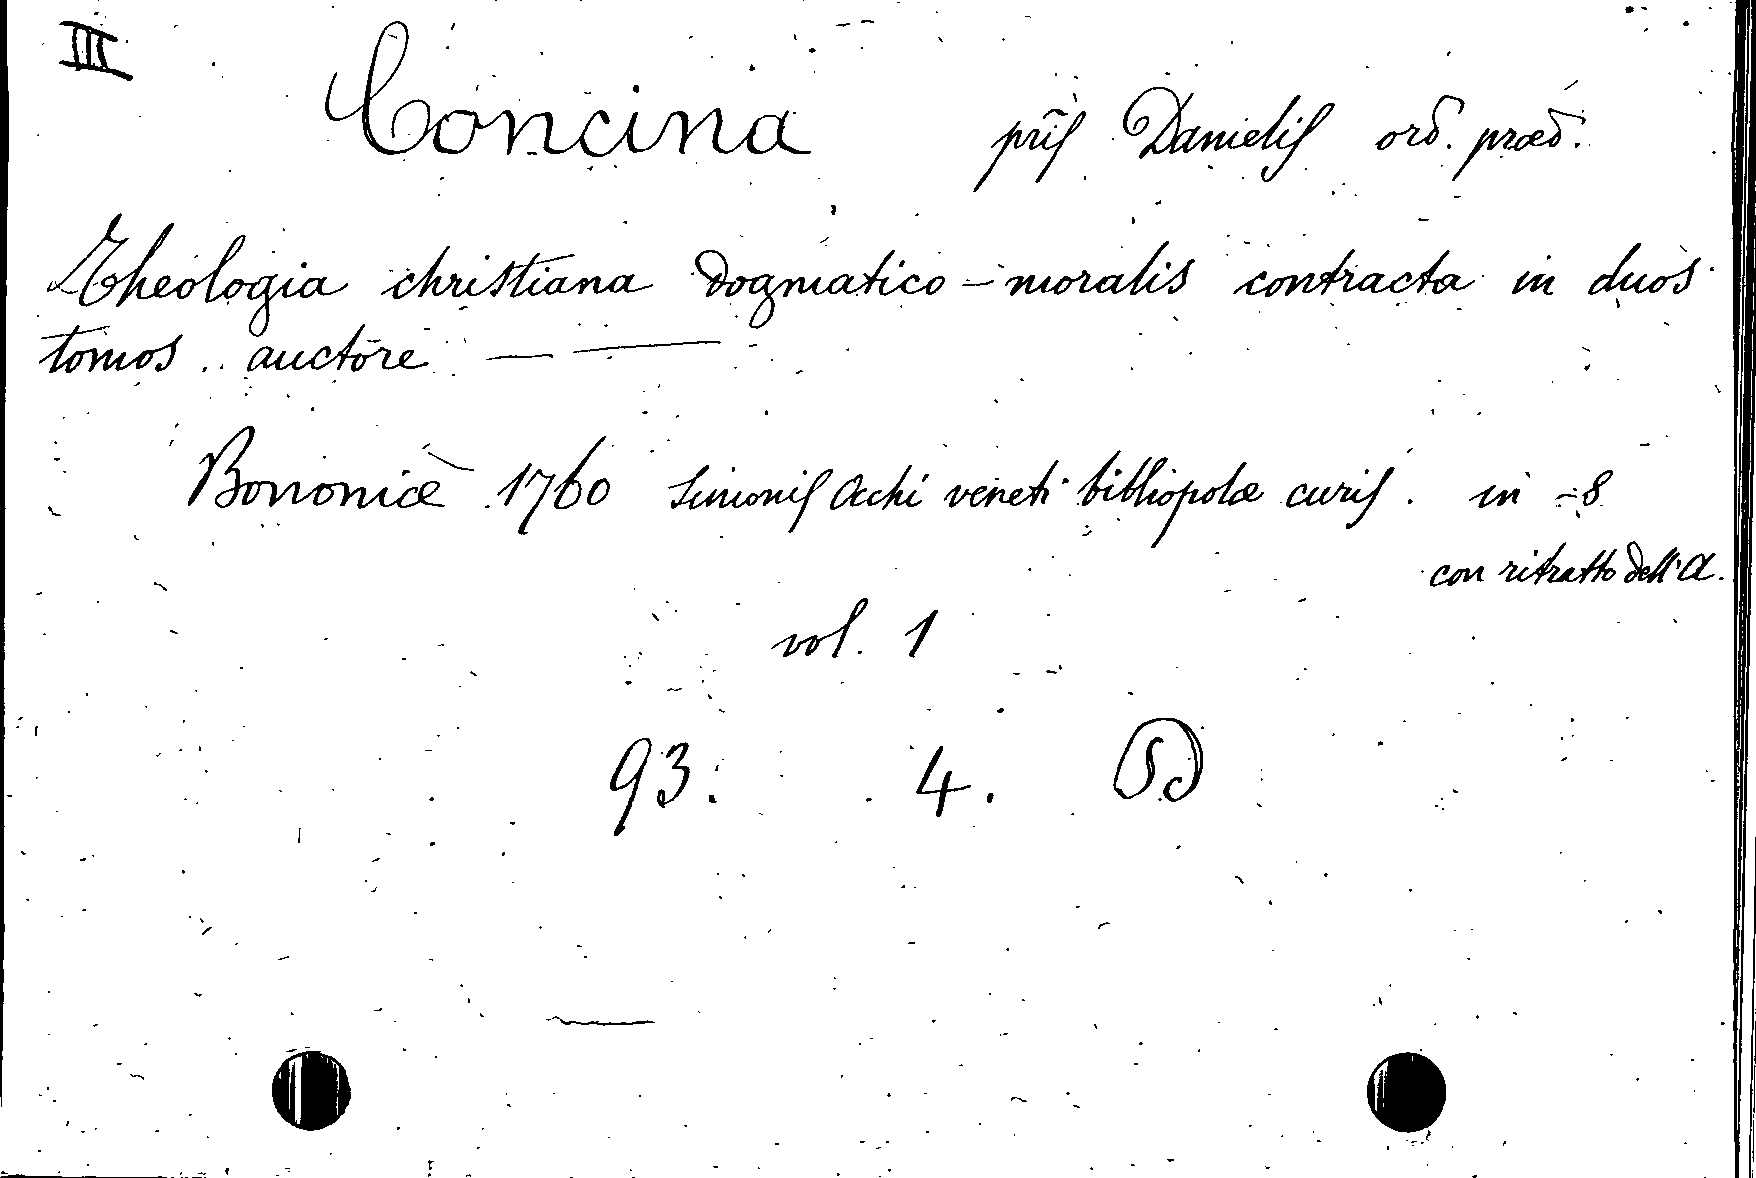 III
Concina pris Danielis ord. præd.
Theologia christiana dogmatico-moralis contracta in duos
tomos .. auctore — —
Bononiæ 1760 Simonis Occhi veneti bibliopolæ curis. in -8
con ritratto dell'A.
vol. 1
93. 4.